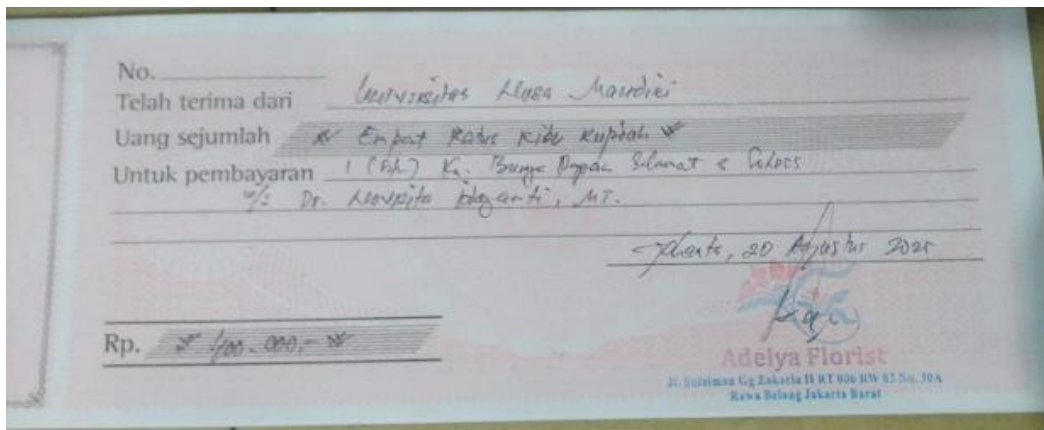 No.
Telah terima dari Universitas Nusa Mandiri
Uang sejumlah Empat Ratus Ribu Rupiah
Untuk pembayaran 1 ( ) Bunga Papan Selamat & Sukses
Dr. , MT.
Jakarta, 20 Agustus 2025
Rp. 400.000,-
Adelya Florist
Jl. Sulaiman Gg Zakaria II RT 006 RW 03 No. 30A
Rawa Belong Jakarta Barat